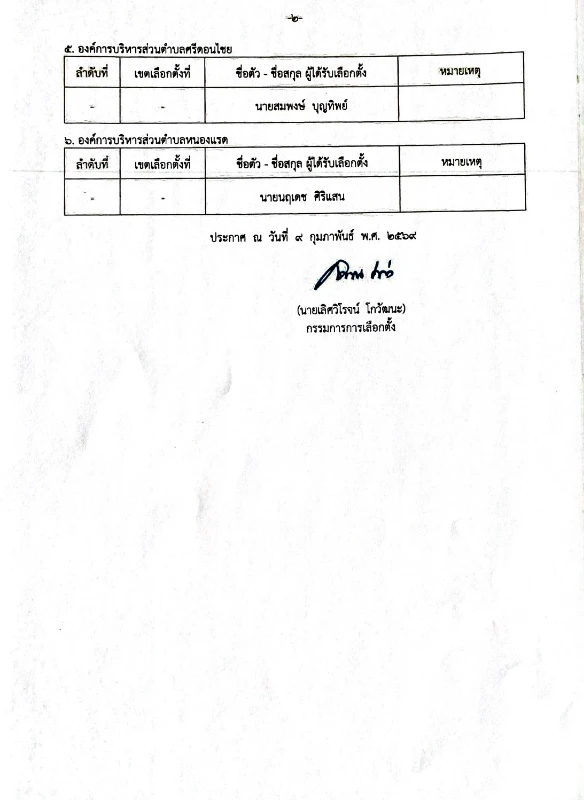 -๒-
๕. องค์การบริหารส่วนตำบลศรีดอนไชย
ลำดับที่ เขตเลือกตั้งที่ ชื่อตัว - ชื่อสกุล ผู้ได้รับเลือกตั้ง หมายเหตุ
- - นายสมพงษ์ บุญทิพย์
๖. องค์การบริหารส่วนตำบลหนองแรด
ลำดับที่ เขตเลือกตั้งที่ ชื่อตัว - ชื่อสกุล ผู้ได้รับเลือกตั้ง หมายเหตุ
- - นายนฤเดช ศิริแสน
ประกาศ ณ วันที่ ๙ กุมภาพันธ์ พ.ศ. ๒๕๖๙
(นายเลิศวิโรจน์ โกวัฒนะ)
กรรมการการเลือกตั้ง